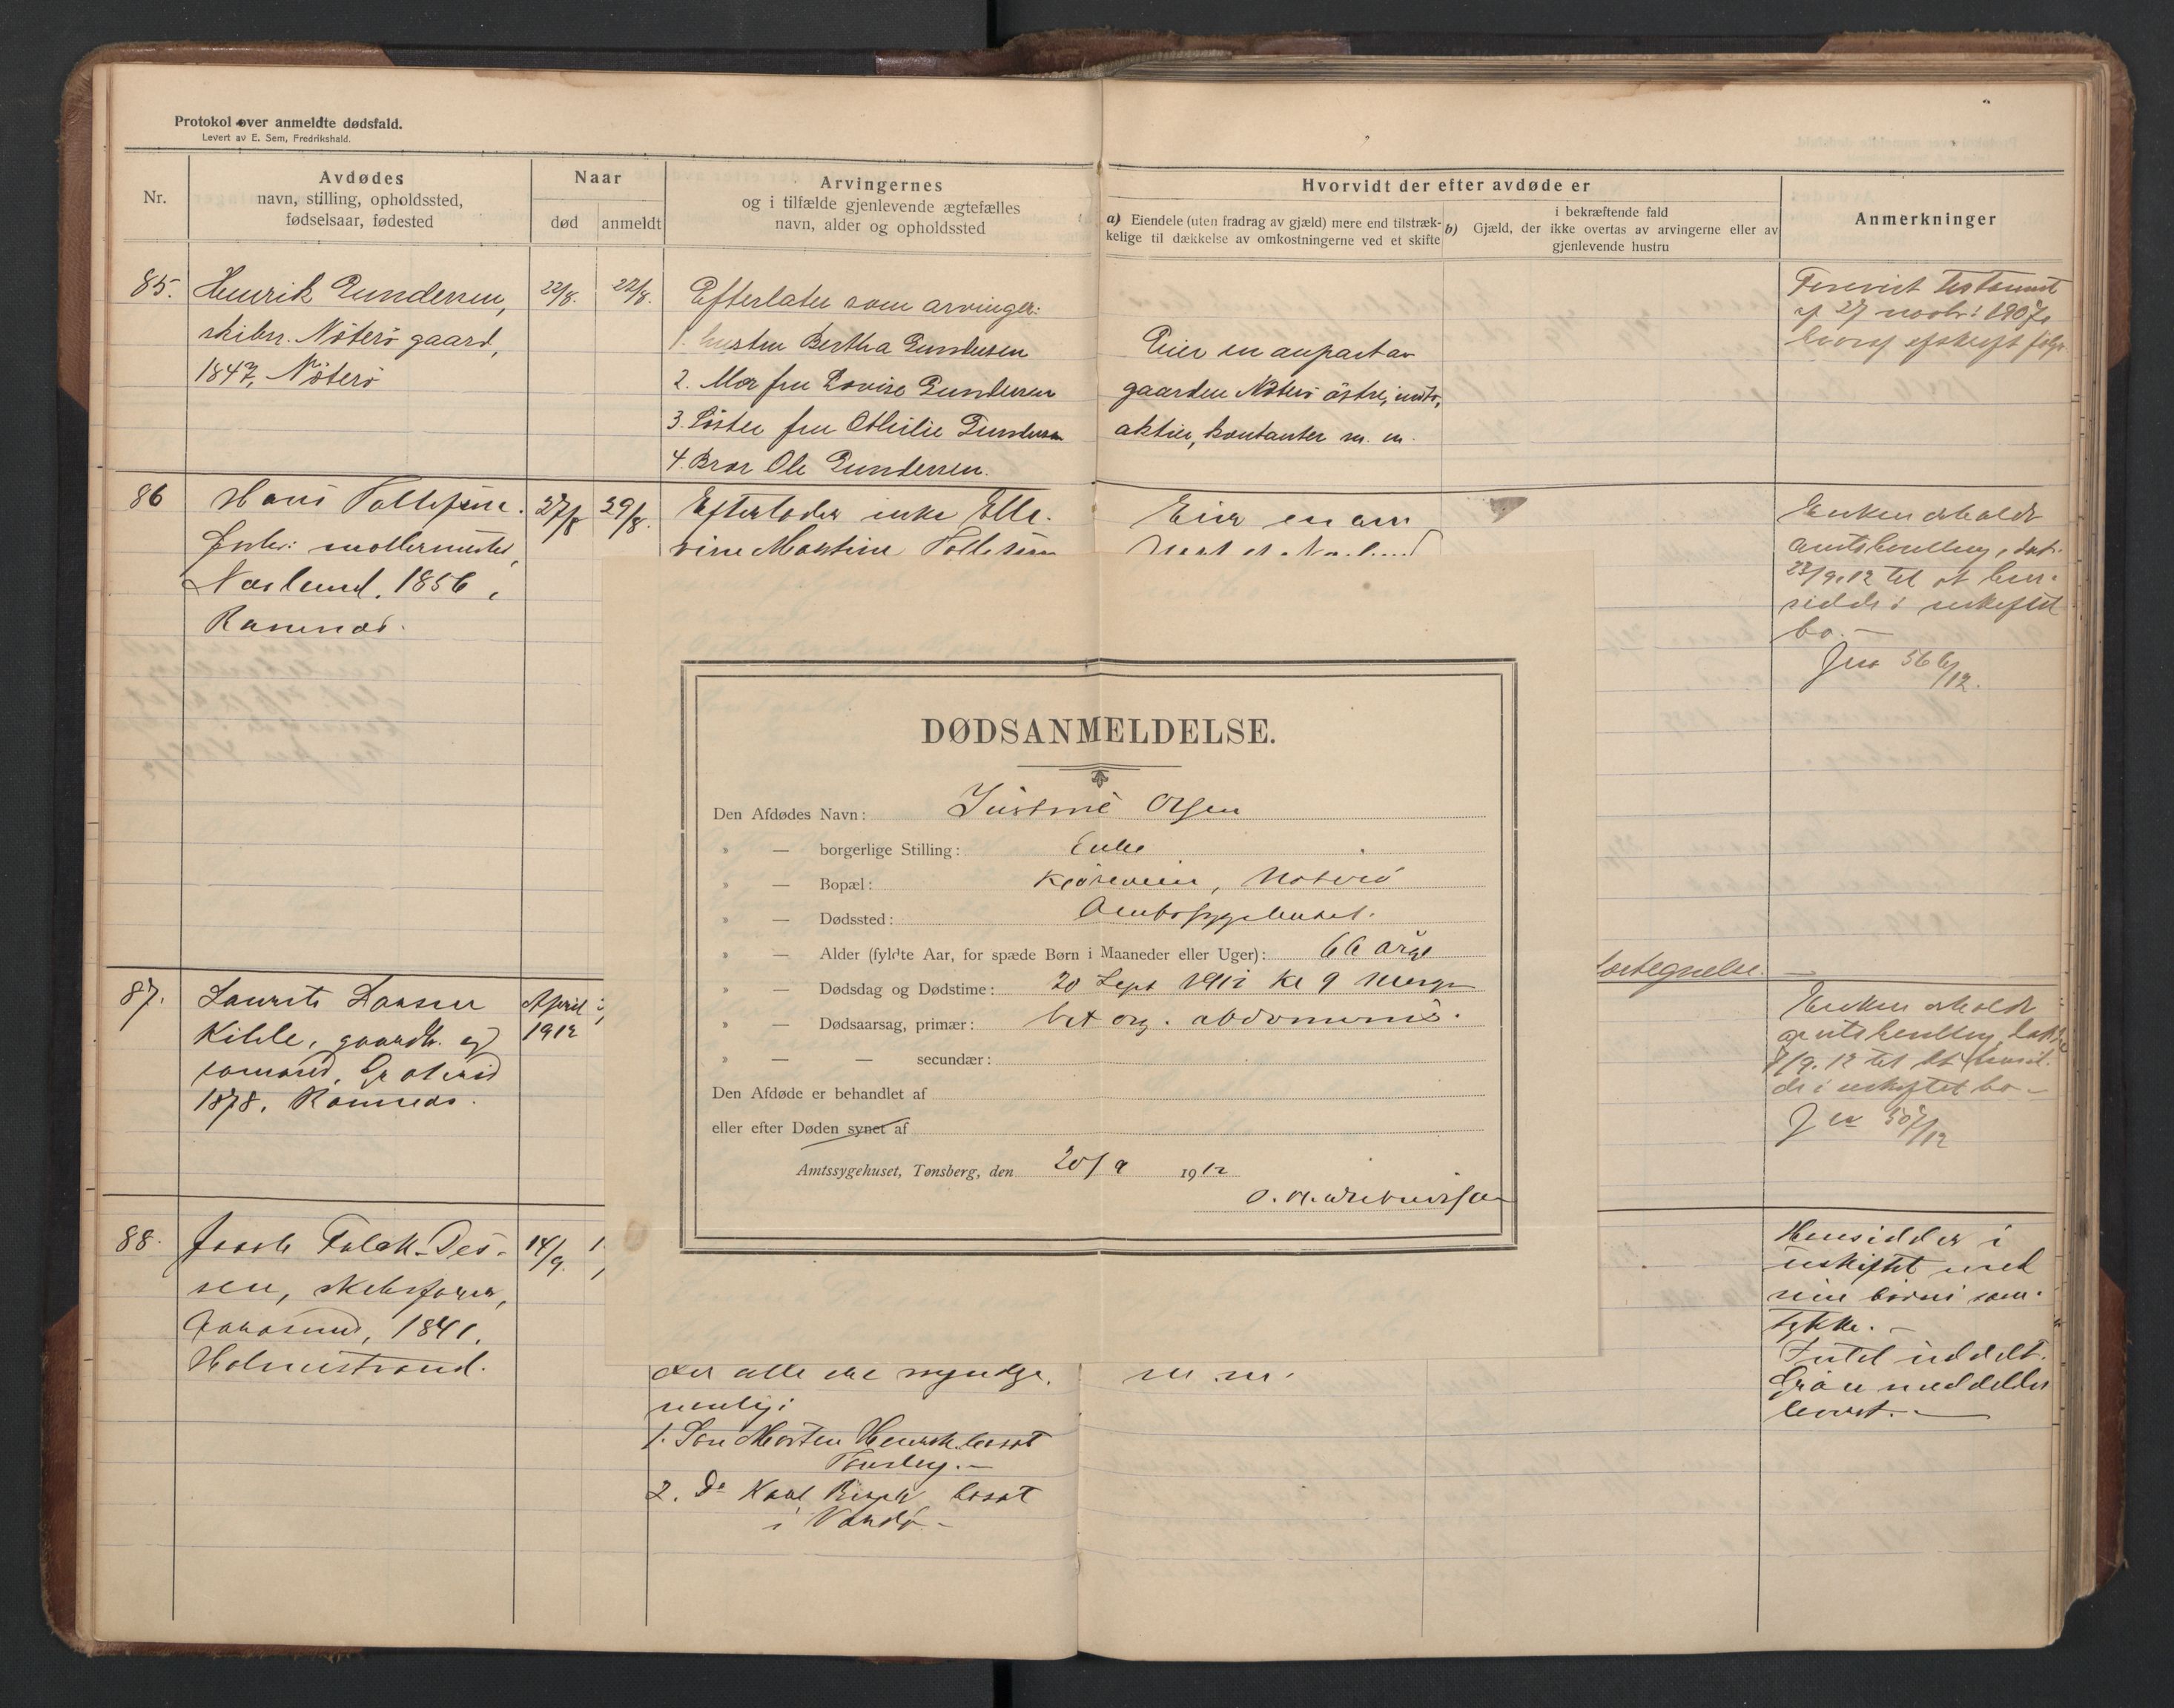 Protokol over anmeldte dødsfald.
Levert av E. Sem, Fredrikshald.
Nr.
Avdødes
navn, stilling, opholdssted,
fødselsaar, fødested
Naar
død
anmeldt
Arvingernes
og i tilfælde gjenlevende ægtefælles
navn, alder og opholdssted
Hvorvidt der efter avdøde er
a) Eiendele (uten fradrag av gjæld) mere end tilstræk-
kelige til dækkelse av omkostningerne ved et skifte
i bekræftende fald
b) Gjæld, der ikke overtas av arvingerne eller av
gjenlevende hustru
Anmerkninger
85.
Henrik Gundersen,
skibsr. Nøterø gaard,
1847, Nøterø
22/8.
22/8.
Efterlater som arvinger:
1. hustru Bertha Gundersen
2. Mor fru Lovise Gundersen
3. Søster fru Othilie Gundersen
4. Bror Ole Gundersen.
Eier en anpart av
gaarden Nøterø østre, indbo,
aktier, kontanter m. m.
Forevist testament
af 27 novbr. 1907,
86
Hans Tollefsen.
møllermester,
Narlund, 1856,
Ramnes.
27/8
29/8.
Efterlader enke Elle-
vine Martine Tollefsen
Eier en an
Enken erholdt
amtsbevilling, dat.
23/9.12 til at hen-
sidde i uskiftet
bo. —
Jno 566/12.
87.
Laurits Larsen
Kihle, gaardbr. og
sømand,
1878. Ramnes.
April
1912
fortegnelse. —
Enken erholdt
amtsbevilling dat.
7/9.12 til at hensid-
de i uskiftet bo —
Jno 507/12
88.
Jacob Falck-Des-
sen, skibsfører,
Aarøsund, 1841,
Holmestrand.
14/9.
der alle ere myndige,
nemlig:
1. Søn Morten Henrik bosat
Tønsberg. —
2. Do Karl bosat
i Vardø —
m. m.
Hensidder i
uskiftet med
sine børns sam-
tykke. —
Intet uddelt.
levert. —
DØDSANMELDELSE.
Den Afdødes Navn: Justine Olsen
» — borgerlige Stilling: Enke
» — Bopæl: Kjøleveien, Nøterø
» — Dødssted: Amtssygehuset.
» — Alder (fyldte Aar, for spæde Børn i Maaneder eller Uger): 66 år
» — Dødsdag og Dødstime: 20 Sept 1912 Kl 9 Morgen
» — Dødsaarsag, primær: Vit org. abdominis.
» — — secundær:
Den Afdøde er behandlet af
eller efter Døden synet af
Amtssygehuset, Tønsberg, den 20/9 1912